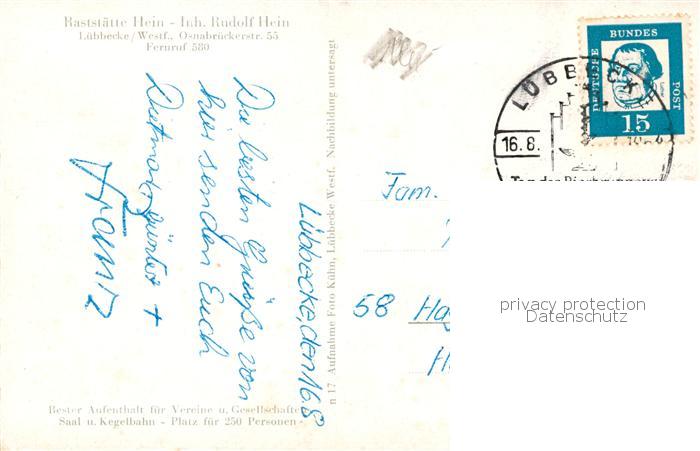 Raststätte Hein - Inh. Rudolf Hein
Lübbecke/Westf., Osnabrückerstr. 55
Fernruf 580
Lübbecke, den 16.8
Die besten Grüße von
hier senden Euch
Dietmar, Günter +
Franz
Bester Aufenthalt für Vereine u. Gesellschafte
Saal u. Kegelbahn - Platz für 250 Personen
n 17 Aufnahme Foto Kühn, Lübbecke Westf. Nachbildung untersagt
DEUTSCHE
BUNDES
POST
15
LÜBBECK
16.8.
Fam.
58 Ha
H
privacy protection
Datenschutz